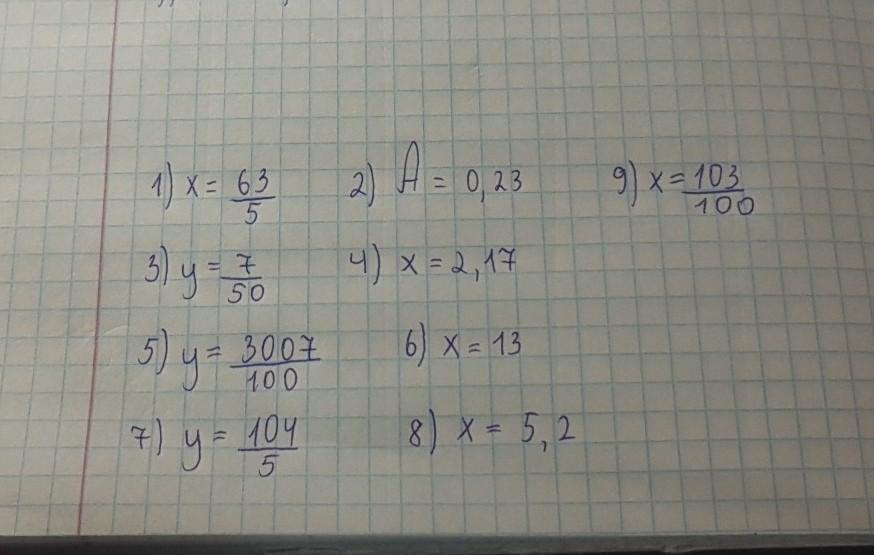 1) x = 63/5 2) A = 0,23 9) x = 103/100
3) y = 7/50 4) x = 2,17
5) y = 3007/100 6) x = 13
7) y = 104/5 8) x = 5,2